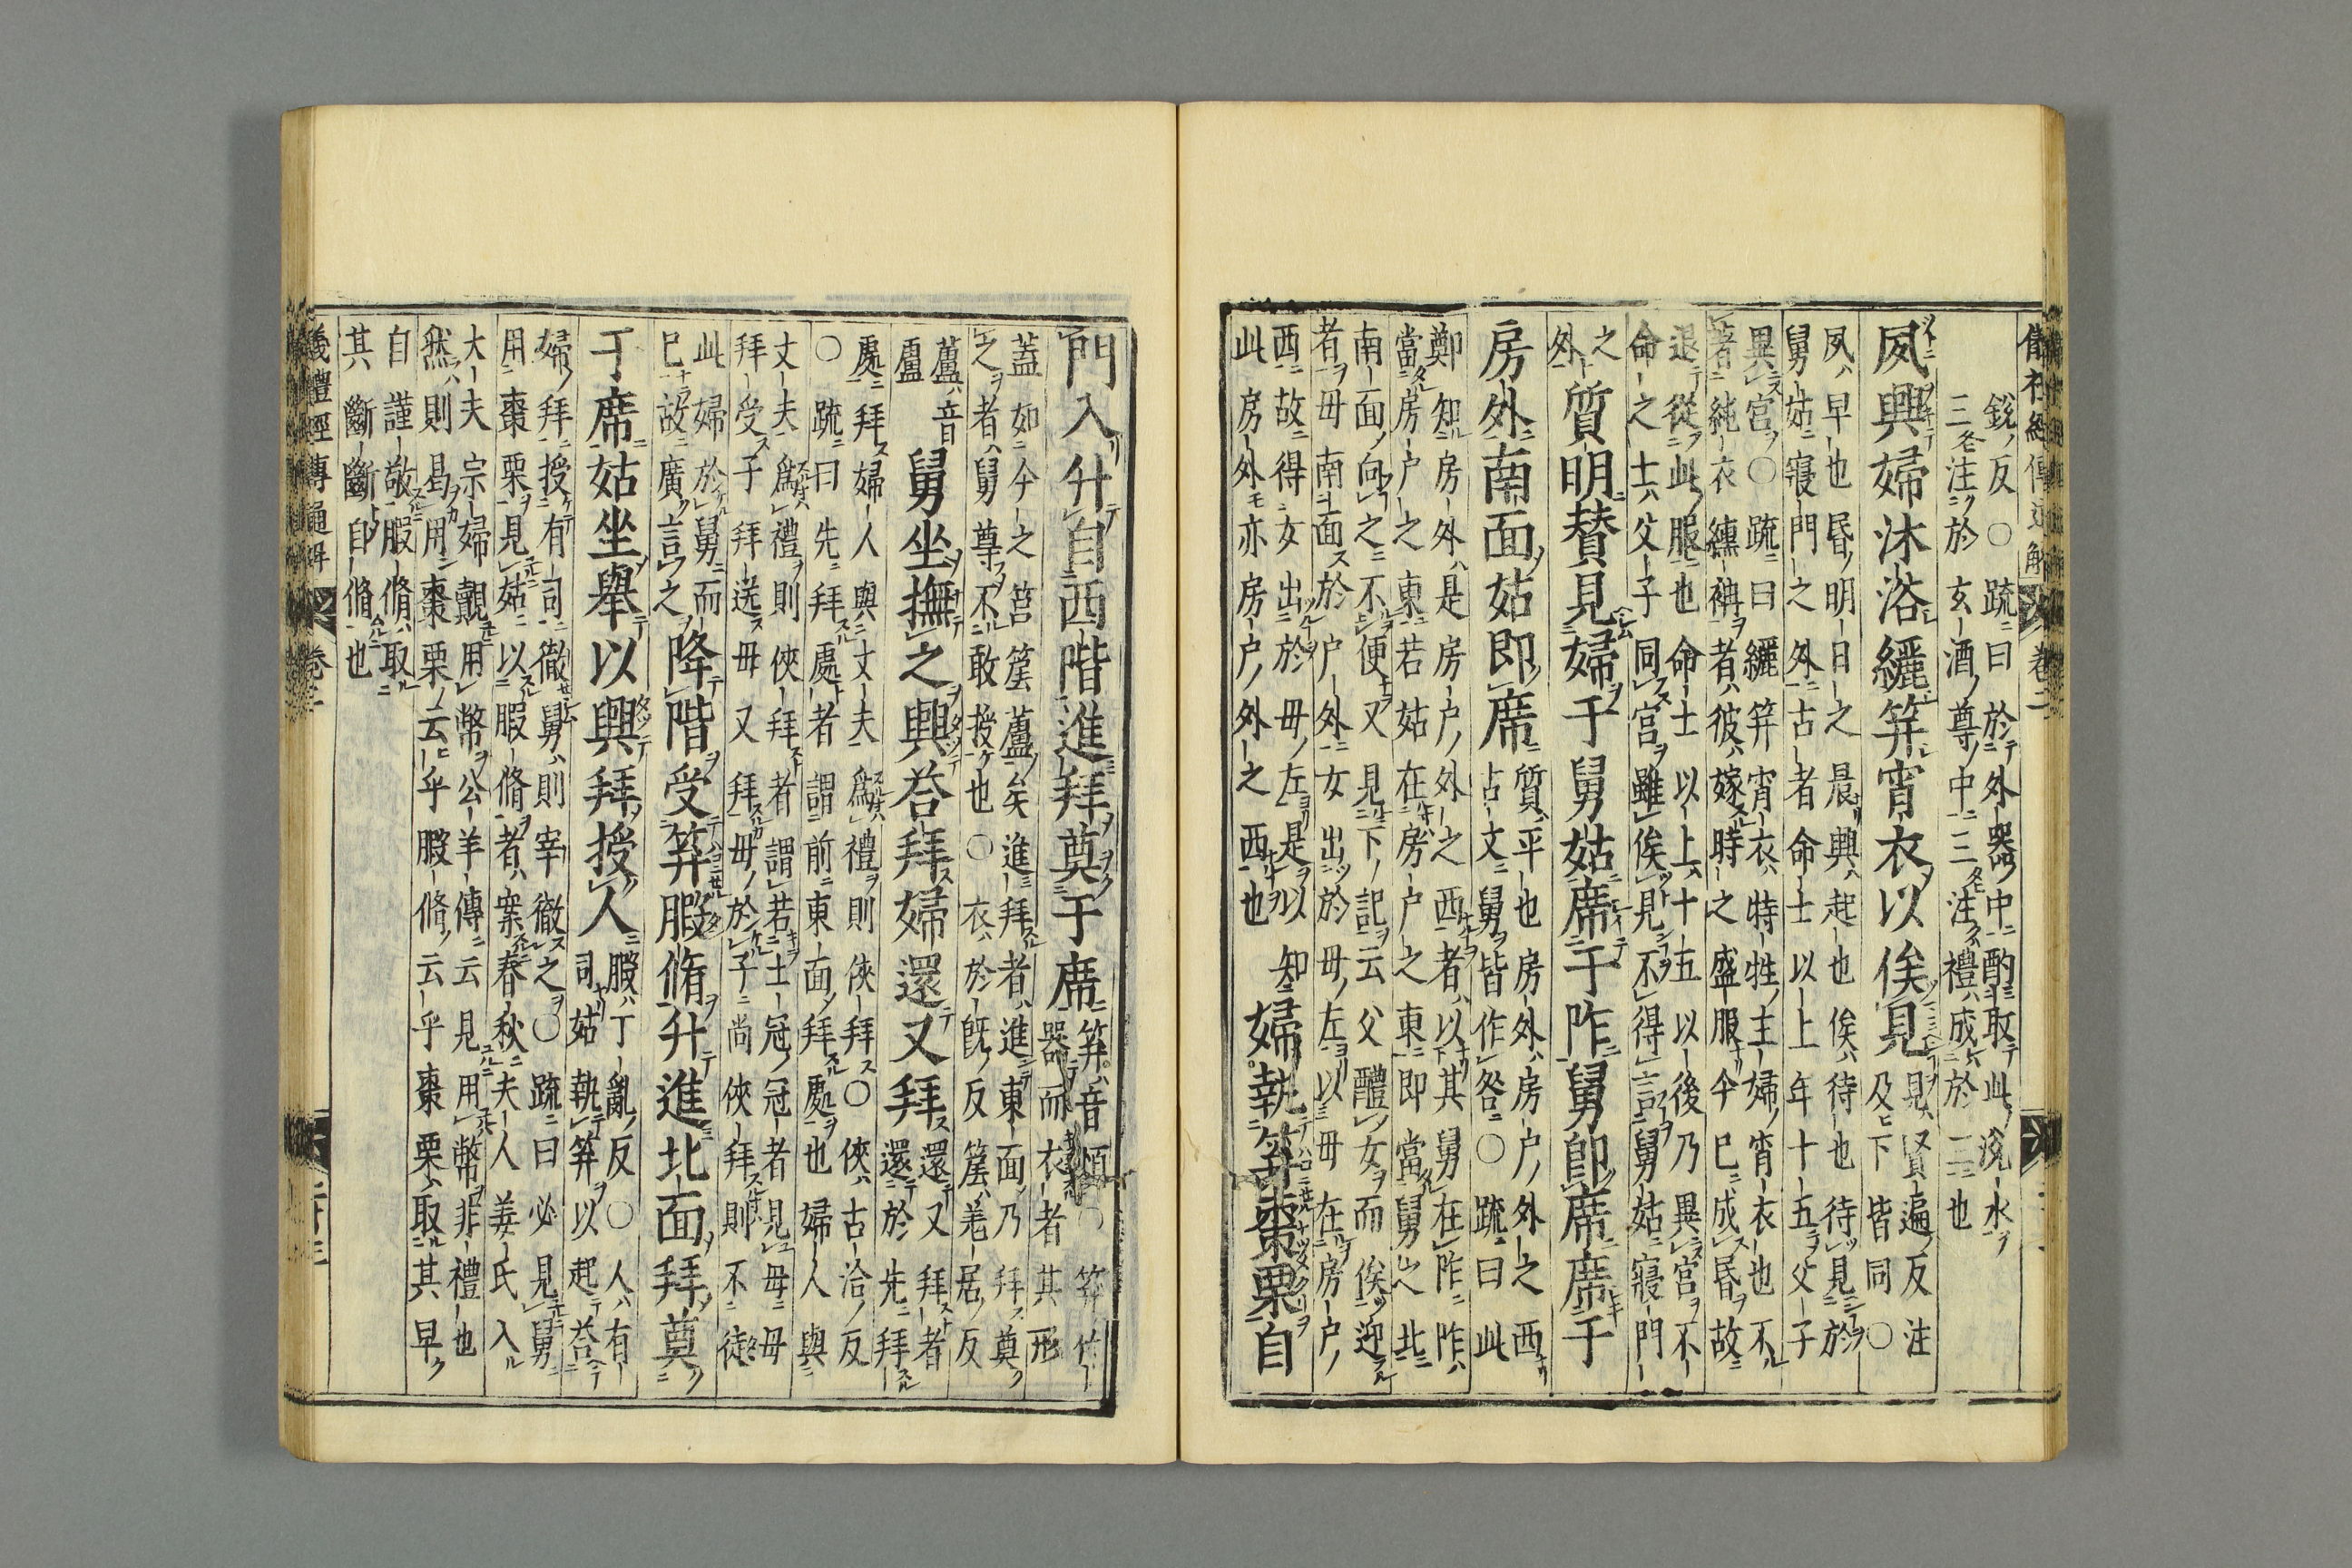 儀禮經傳通解 卷二
鋭反○疏曰於外器中酌取此涗水
三注於玄酒尊中三注禮成於三也
夙興婦沐浴纚笄宵衣以俟見
見賢遍反注
及下皆同○
夙早也昏明日之晨興起也俟待也待見於
舅姑寢門之外古者命士以上年十五父子
異宮○疏曰纚笄宵衣特牲主婦宵衣也不
著純衣纁袡者彼嫁時之盛服今已成昏故
退從此服也命士以上十五以後乃異宮不
命之士父子同宮雖俟見不得言舅姑寢門
之
外
質明賛見婦于舅姑席于阼舅卽席席于
房外南面姑即席
質平也房外房户外之西
古文舅皆作咎○疏曰此
鄭知房外是房户外之西者以其舅在阼阼
當房户之東若姑在房户之東即當舅之北
南面向之不便又見下記云父醴女而俟迎
者母南面於户外女出於母左以母在房户
西故得女出於母左是以知
此房外亦房户外之西也
婦執笲棗栗自
門入升自西階進拜奠于席
笲音煩○笲竹
器而衣者其形
蓋如今之筥𥬔蘆矣進拜者進東面乃拜奠
之者舅尊不敢授也○衣於既反𥬔羌居反
蘆音
盧
舅坐撫之興荅拜婦還又拜
還又拜者
還於先拜
處拜婦人與丈夫爲禮則俠拜○俠古洽反
○疏曰先拜處者謂前東面拜處也婦人與
丈夫爲禮則俠拜者謂若士冠冠者見母母
拜受子拜送母又拜母於子尚俠拜則不徒
此婦於舅而
已故廣言之
降階受笲腶脩升進北面拜奠
于席姑坐舉以興拜授人
腶丁亂反○人有
司姑執笲以起荅
婦拜授有司徹舅則宰徹之○疏曰必見舅
用棗栗見姑以腶脩者案春秋夫人姜氏入
大夫宗婦覿用幣公羊傳云見用幣非禮也
然則曷用棗栗云乎腶脩云乎棗栗取其早
自謹敬腶脩取
其斷斷自脩也
儀禮經傳通解 卷二 二十三